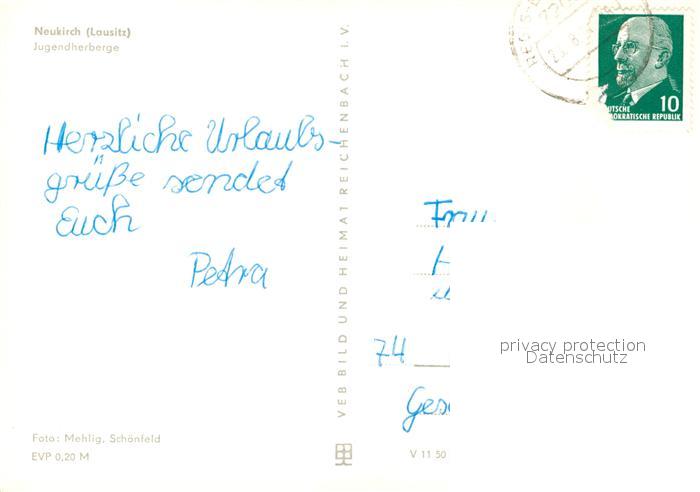 Neukirch (Lausitz)
Jugendherberge
Herzliche Urlaubs-
grüße sendet
Euch
Petra
VEB BILD UND HEIMAT REICHENBACH I. V.
10
DEUTSCHE
DEMOKRATISCHE REPUBLIK
74
privacy protection
Datenschutz
Foto: Mehlig, Schönfeld
EVP 0,20 M
V 11 50